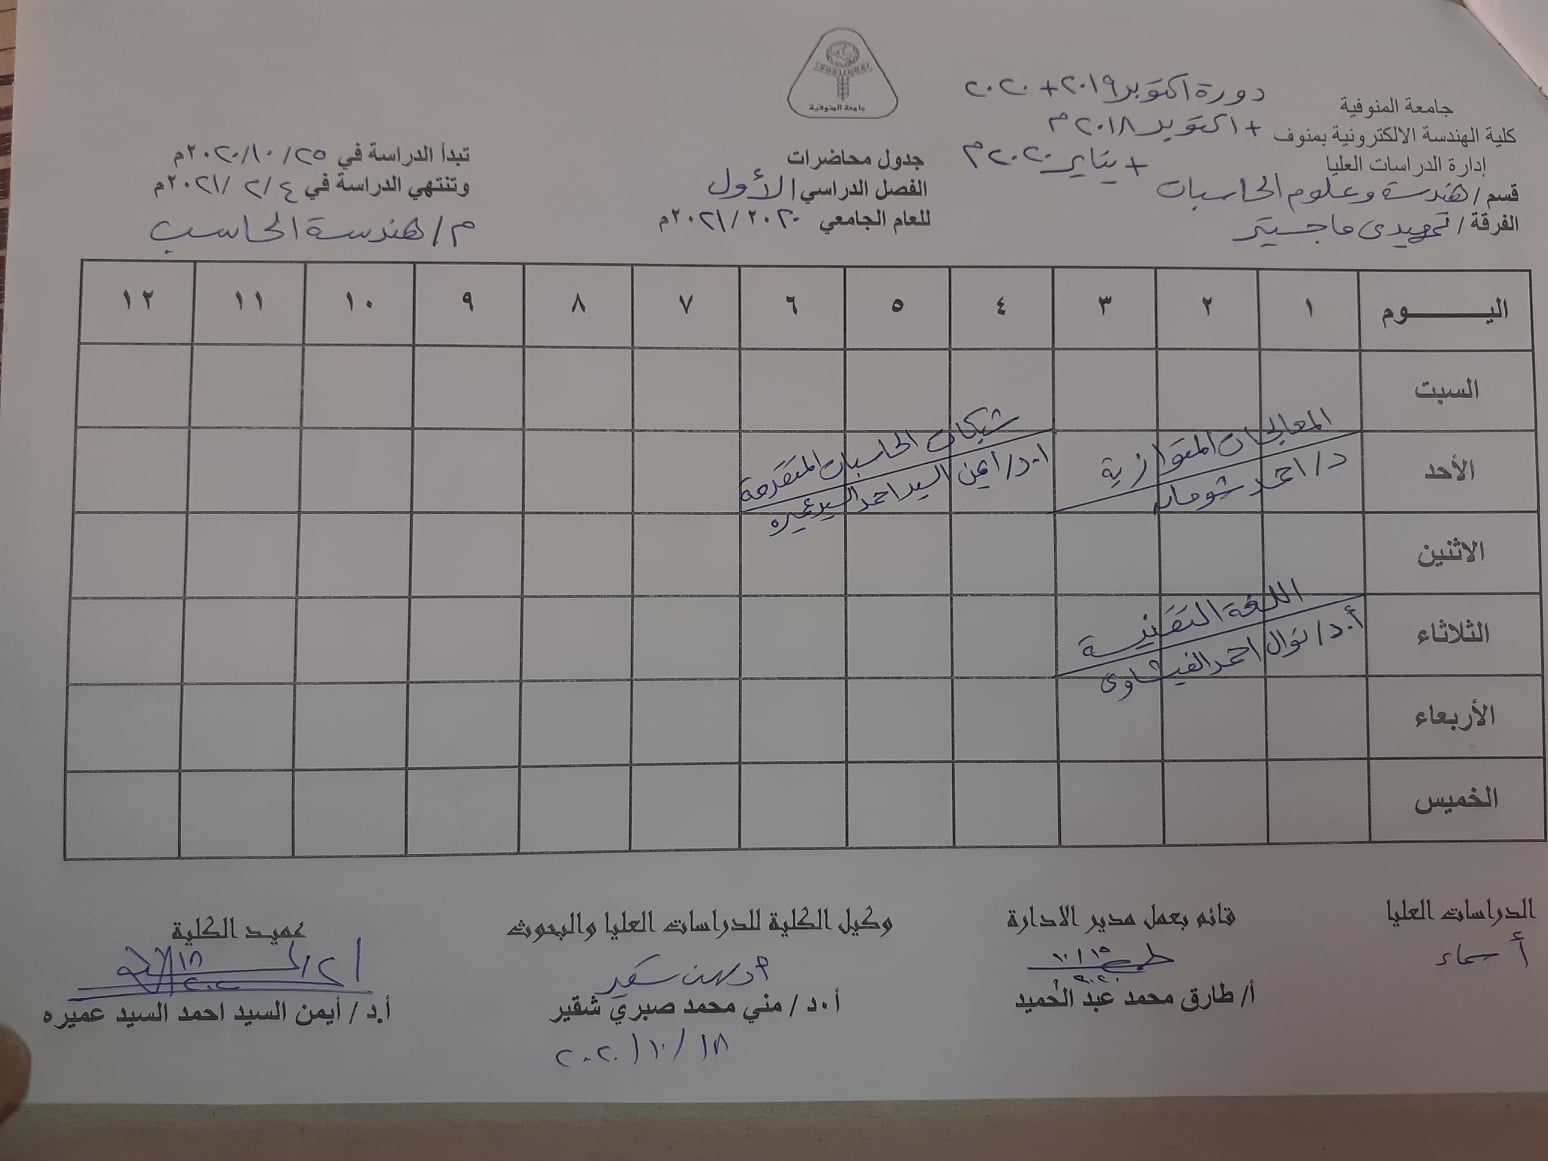 جامعة المنوفية
كلية الهندسة الالكترونية بمنوف
إدارة الدراسات العليا
قسم / هندسة وعلوم الحاسبات
الفرقة / تمهيدى ماجستير
دورة اكتوبر ٢٠١٩ + ٢٠٢٠
+ اكتوبر ٢٠١٨م
+ يناير ٢٠٢٠م
جامعة المنوفية
جدول محاضرات
الفصل الدراسي الأول
للعام الجامعي ٢٠٢٠ / ٢٠٢١م
تبدأ الدراسة في ٢٥ / ١٠ / ٢٠٢٠م
وتنتهي الدراسة في ٤ / ٢ / ٢٠٢١م
م / هندسة الحاسب
اليـــــوم ١ ٢ ٣ ٤ ٥ ٦ ٧ ٨ ٩ ١٠ ١١ ١٢
السبت
الأحد
المعالجات المتوازية
د/ احمد شومان
شبكات الحاسبات المتقدمة
ا.د/ ايمن السيد احمد السيد عميره
الاثنين
الثلاثاء
اللغة التقنية
أ.د/ نوال احمد الفيشاوى
الأربعاء
الخميس
الدراسات العليا
أسماء
قائم بعمل مدير الادارة
١٠/١٥
٢٠٢٠
أ/ طارق محمد عبد الحميد
وكيل الكلية للدراسات العليا والبحوث
أ.د / مني محمد صبري شقير
١٨ / ١٠ / ٢٠٢٠
عميد الكلية
أ.د / أيمن السيد احمد السيد عميره